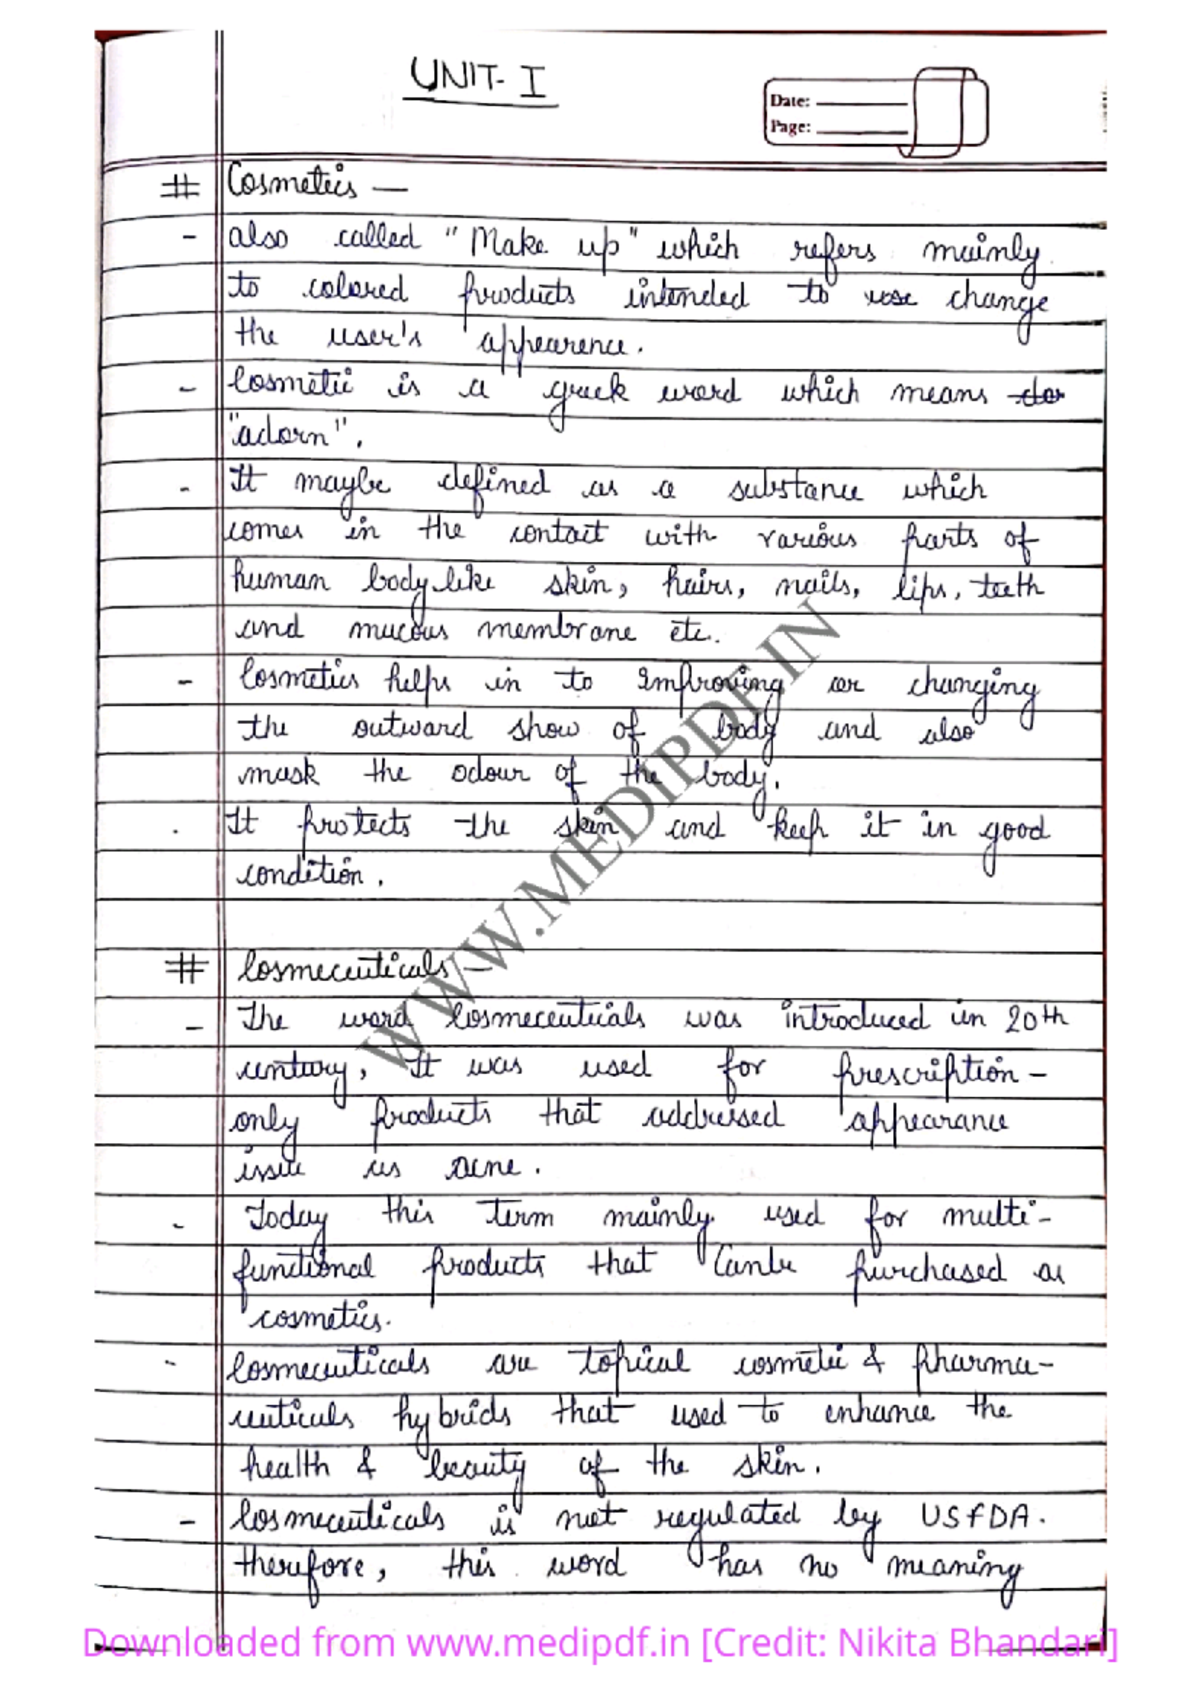 UNIT- I
Date:
Page:
# Cosmetics —
- also called "Make up" which refers mainly
to colored products intended to use change
the user's appearence.
- Cosmetic is a greek word which means
"adorn".
- It maybe defined as a substance which
comes in the contact with various parts of
human body like skin, hairs, nails, lips, teeth
and mucous membrane etc.
- Cosmetics helps in to improving or changing
the outward show of body and also
mask the odour of the body.
. It protects the skin and keep it in good
condition.
# Cosmeceuticals -
- The word Cosmeceuticals was introduced in 20th
century, It was used for prescription-
only products that addressed appearance
issue as acne.
- Today this term mainly used for multi-
functional products that Canbe purchased as
cosmetics.
- Cosmeceuticals are topical cosmetic & pharma-
ceuticals hybrids that used to enhance the
health & beauty of the skin.
- Cosmeceuticals is not regulated by USFDA.
therefore, this word has no meaning
WWW.MEDIPDF.IN
Downloaded from www.medipdf.in [Credit: Nikita Bhandari]